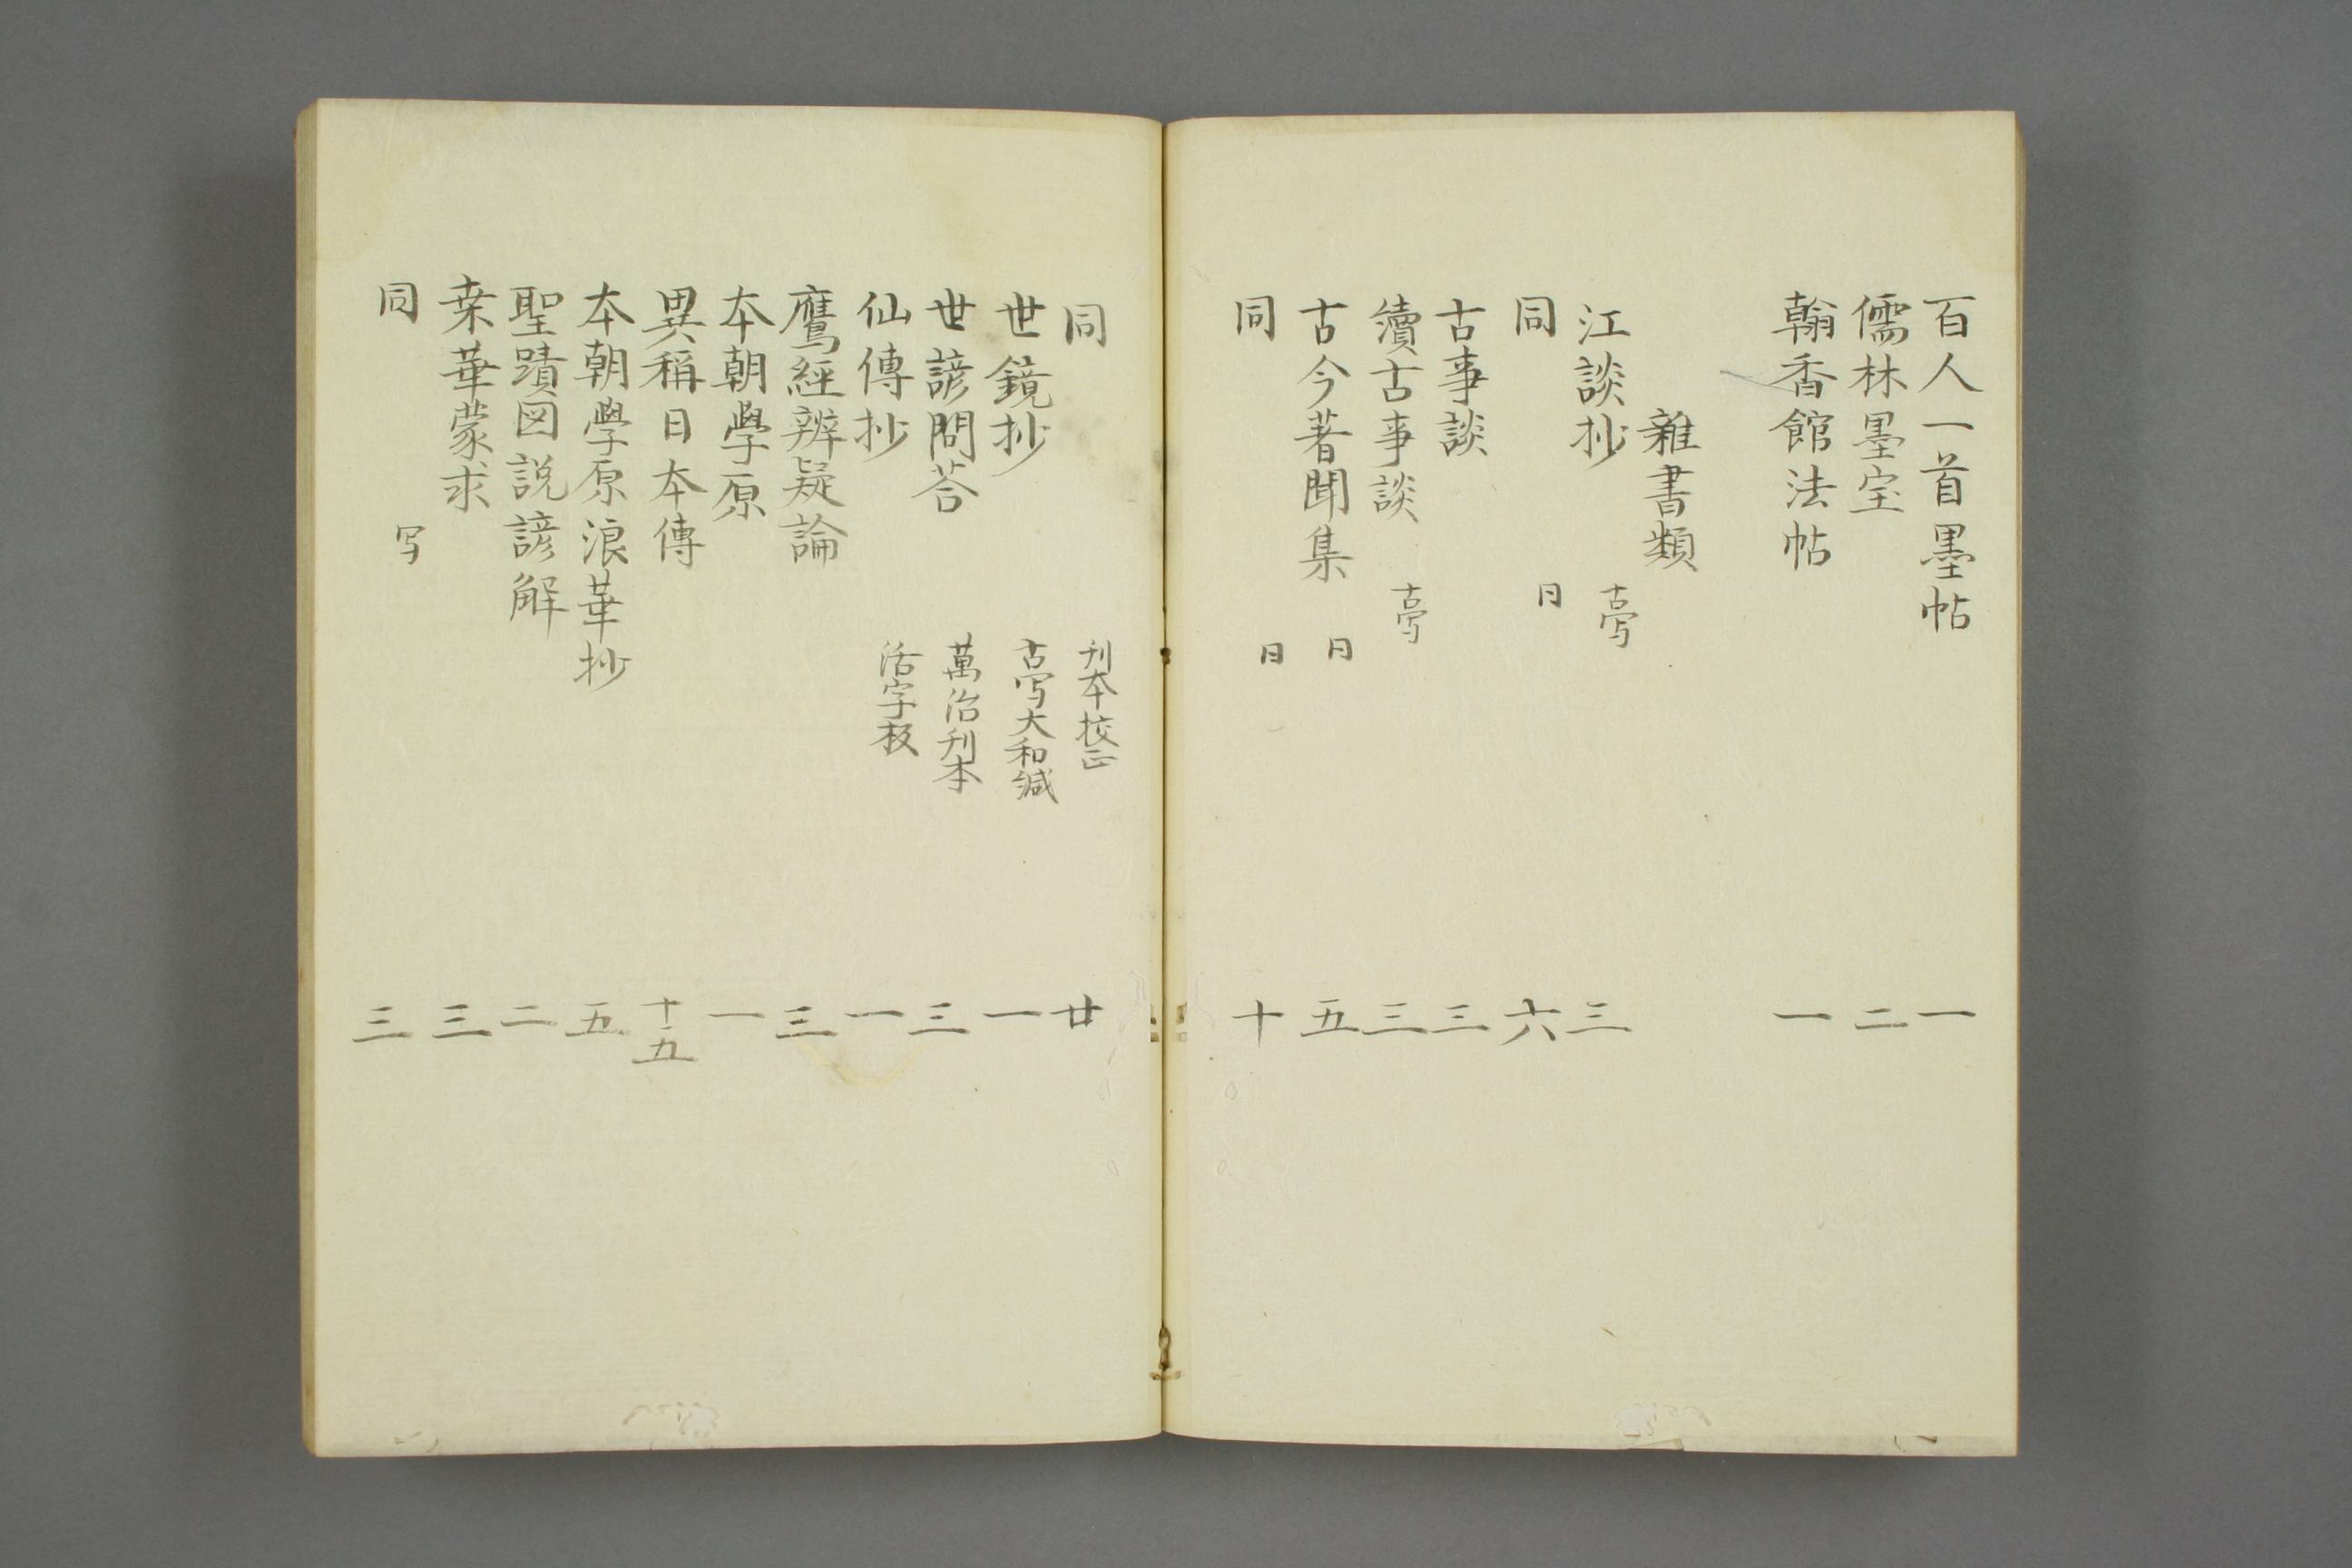 百人一首墨帖 一
儒林墨宝 二
翰香館法帖 一
雜書類
江談抄 古写 三
同 日 六
古事談 三
續古事談 古写 三
古今著聞集 日 五
同 日 十
同 刊本校正 廿
世鏡抄 古写大和綴 一
世諺問荅 萬治刊本 三
仙傳抄 活字板 一
鷹經辨疑論 三
本朝學原 一
異稱日本傳 十五
本朝學原浪華抄 五
聖蹟図説諺解 二
桒華蒙求 三
同 写 三